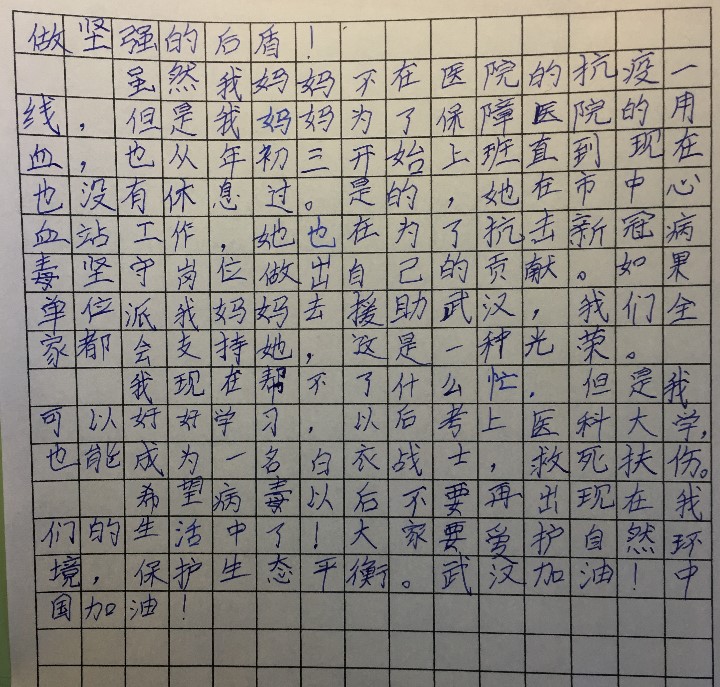 做坚强的后盾！
虽然我妈妈不在医院的抗疫一
线，但是我妈妈为了保障医院的用
血，也从年初三开始上班直到现在
也没有休息过。是的，她在市中心
血站工作，她也在为了抗击新冠病
毒坚守岗位做出自己的贡献。如果
单位派我妈妈去援助武汉，我们全
家都会支持她，这是一种光荣。
我现在帮不了什么忙，但是我
可以好好学习，以后考上医科大学，
也能成为一名白衣战士，救死扶伤。
希望病毒以后不要再出现在我
们的生活中了！大家要爱护自然环
境，保护生态平衡。武汉加油！中
国加油！